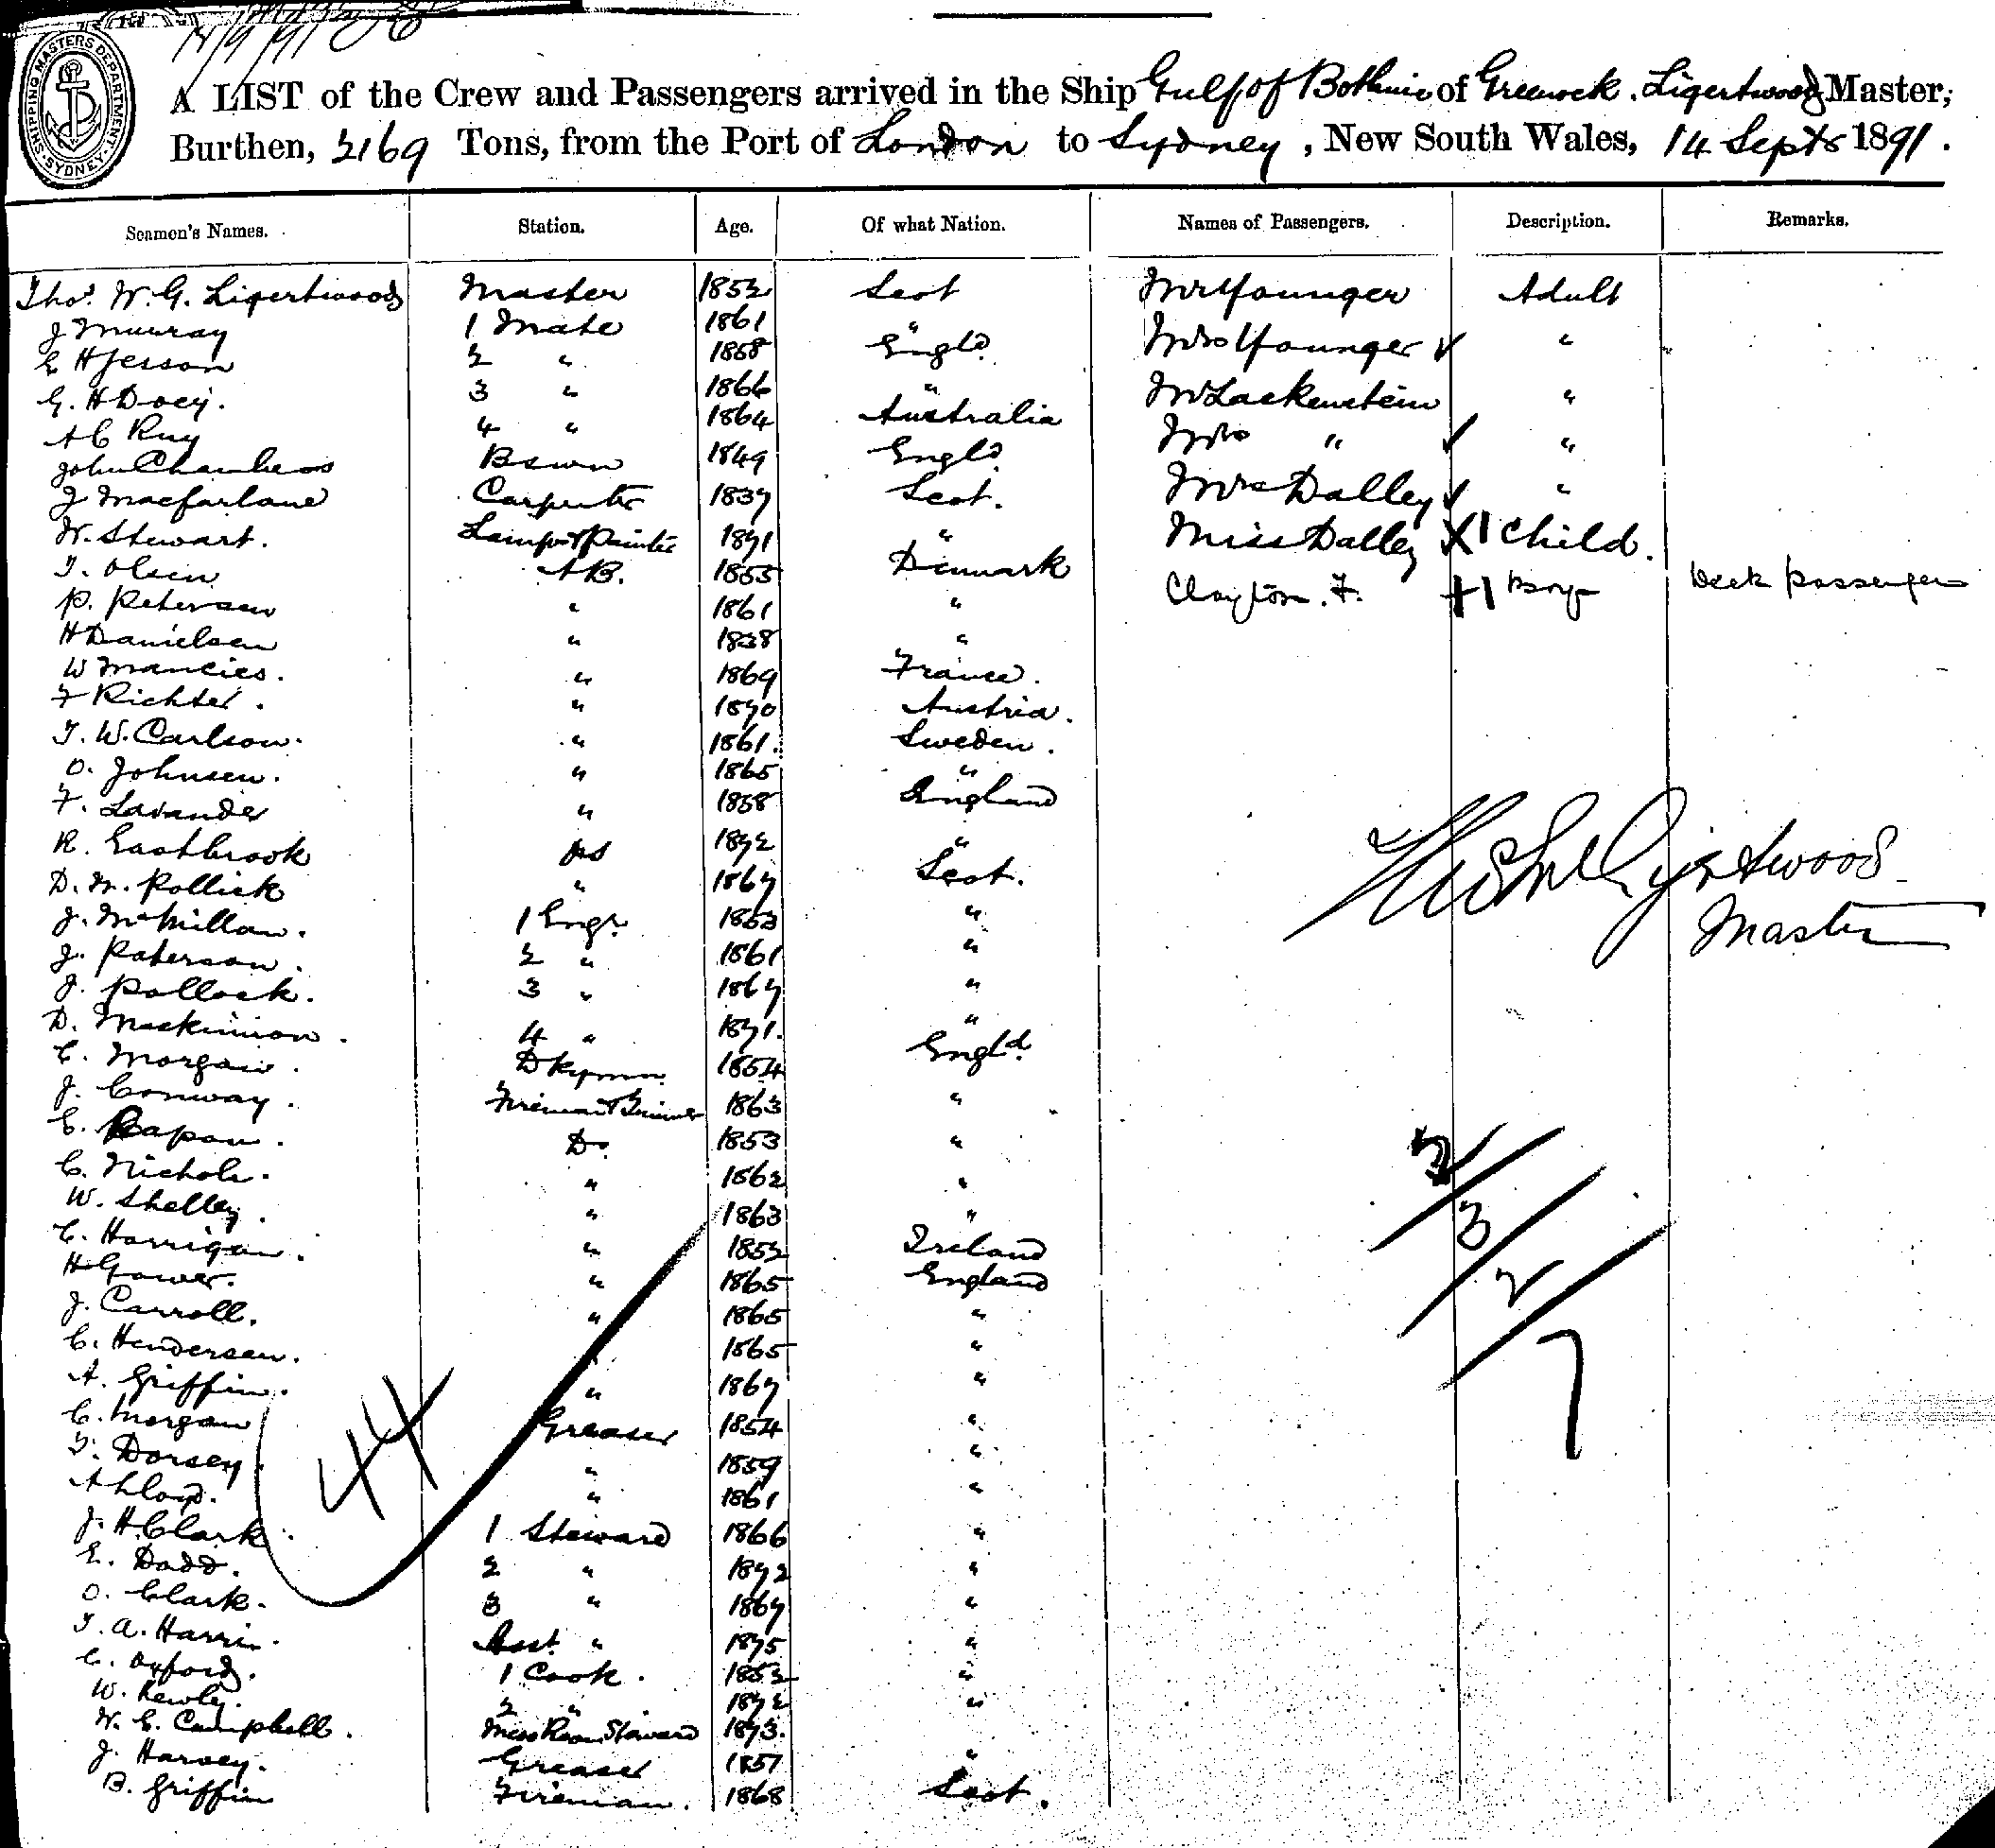 SHIPPING MASTERS DEPARTMENT · SYDNEY ·
A LIST of the Crew and Passengers arrived in the Ship Gulf of Bothnia of Greenock. Ligertwood Master,
Burthen, 2169 Tons, from the Port of London to Sydney, New South Wales, 14 Septr 1891.
Seamen's Names. Station. Age. Of what Nation. Names of Passengers. Description. Remarks.
Thos. W. G. Ligertwood Master 1852 Scot Mr Younger Adult
J Murray 1 Mate 1861 " Mrs Younger "
E H Jesson 2 " 1858 Engld. Mr Lackenstein "
G. H Docy. 3 " 1866 " Mrs " "
A C Ruy 4 " 1864 Australia Mrs Dalley "
John Chambers Bswn 1849 Engld. Miss Dalley X 1 Child.
J Macfarlane Carpenter 1837 Scot. Clayton. F. + 1 Boy Deck passenger
W. Stewart. Lamps & Painter 1871 "
T. Olsen AB. 1855 Denmark
P. Petersen " 1861 "
H Danielsen " 1838 "
W Mancies. " 1869 France.
F Richter. " 1870 Austria.
T. W. Carlson. " 1861. Sweden.
O. Johnsen. " 1865 "
F. Lavander " 1858 England
R. Eastbrook OS 1872 "
D. M. Pollick " 1867 Scot.
J. McMillan. 1 Engr. 1853 "
J. Paterson. 2 " 1861 "
J. Pollock. 3 " 1867 "
D. Mackinnon. 4 " 1871. "
C. Morgan. Dkymn 1854 Engld.
J. Conway. Fireman & Trimmer 1863 "
E. Rapon. Do 1853 "
C. Nichols. " 1862 "
W. Shelley. " 1863 "
C. Harrigan. " 1852 Ireland
H Gower. " 1865 England
J. Carroll. " 1865 "
C. Hendersen. " 1865 "
A. Griffin. " 1867 "
C. Morgan Greaser 1854 "
T. Dorsey. " 1859 "
A Lloyd. " 1861 "
J. H. Clark. 1 Steward 1866 "
E. Dodd. 2 " 1872 "
O. Clark. 3 " 1867 "
T. A. Harris. Asst. " 1875 "
C. Oxford. 1 Cook. 1852 "
W. Kewley. 2 " 1872 "
W. E. Campbell. Mess Room Steward 1873.
J. Harvey. Greaser 1857 "
B. Griffin Fireman. 1868 Scot.
Ligertwood
Master
2/
3/
2/
7
44